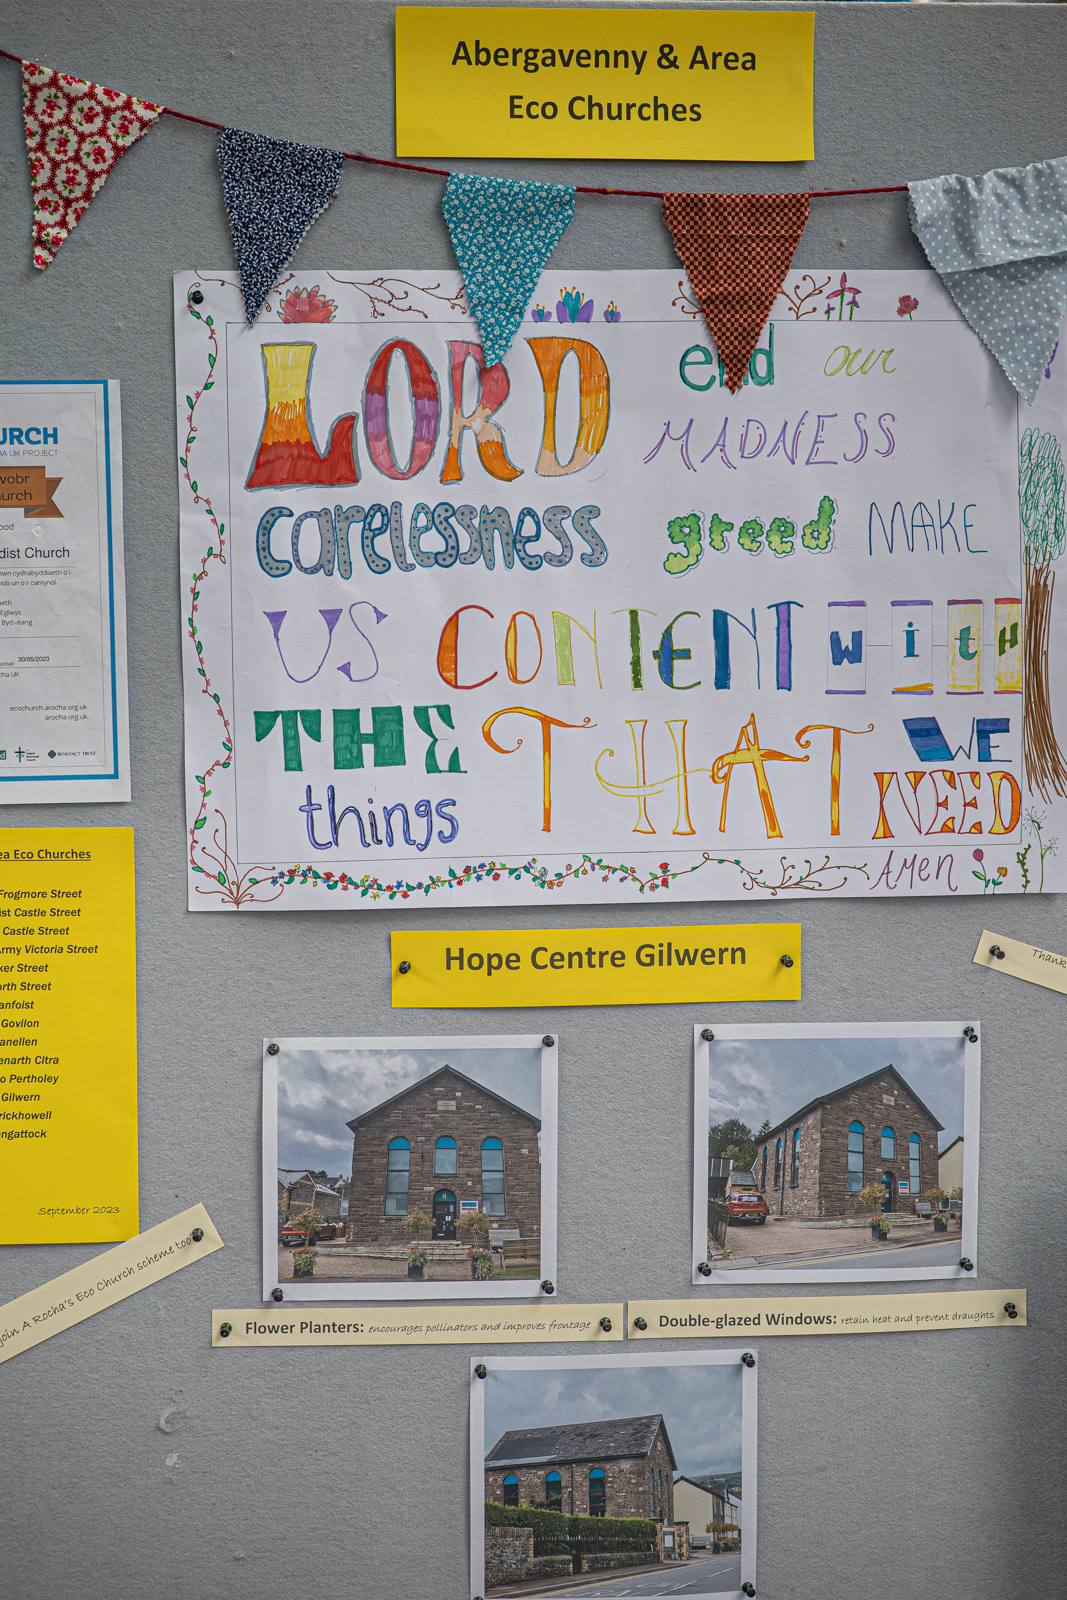 Abergavenny & Area
Eco Churches
LORD end our
MADNESS
carelessness greed MAKE
US CONTENT with
THE THAT WE
things NEED
Amen
URCH
UK PROJECT
wobr
hurch
ood
dist Church
ewn cydnabyddiaeth o'i
nob un o'r canlynol
aeth
Eglwys
Byd-eang
30/05/2023
cha UK
ecochurch.arocha.org.uk
arocha.org.uk
BENEFACT TRUST
ea Eco Churches
Frogmore Street
ist Castle Street
Castle Street
Army Victoria Street
ker Street
orth Street
anfoist
Govilon
anellen
enarth Citra
o Pertholey
Gilwern
rickhowell
angattock
September 2023
Hope Centre Gilwern
Thank
join A Rocha's Eco Church scheme too
Flower Planters: encourages pollinators and improves frontage
Double-glazed Windows: retain heat and prevent draughts